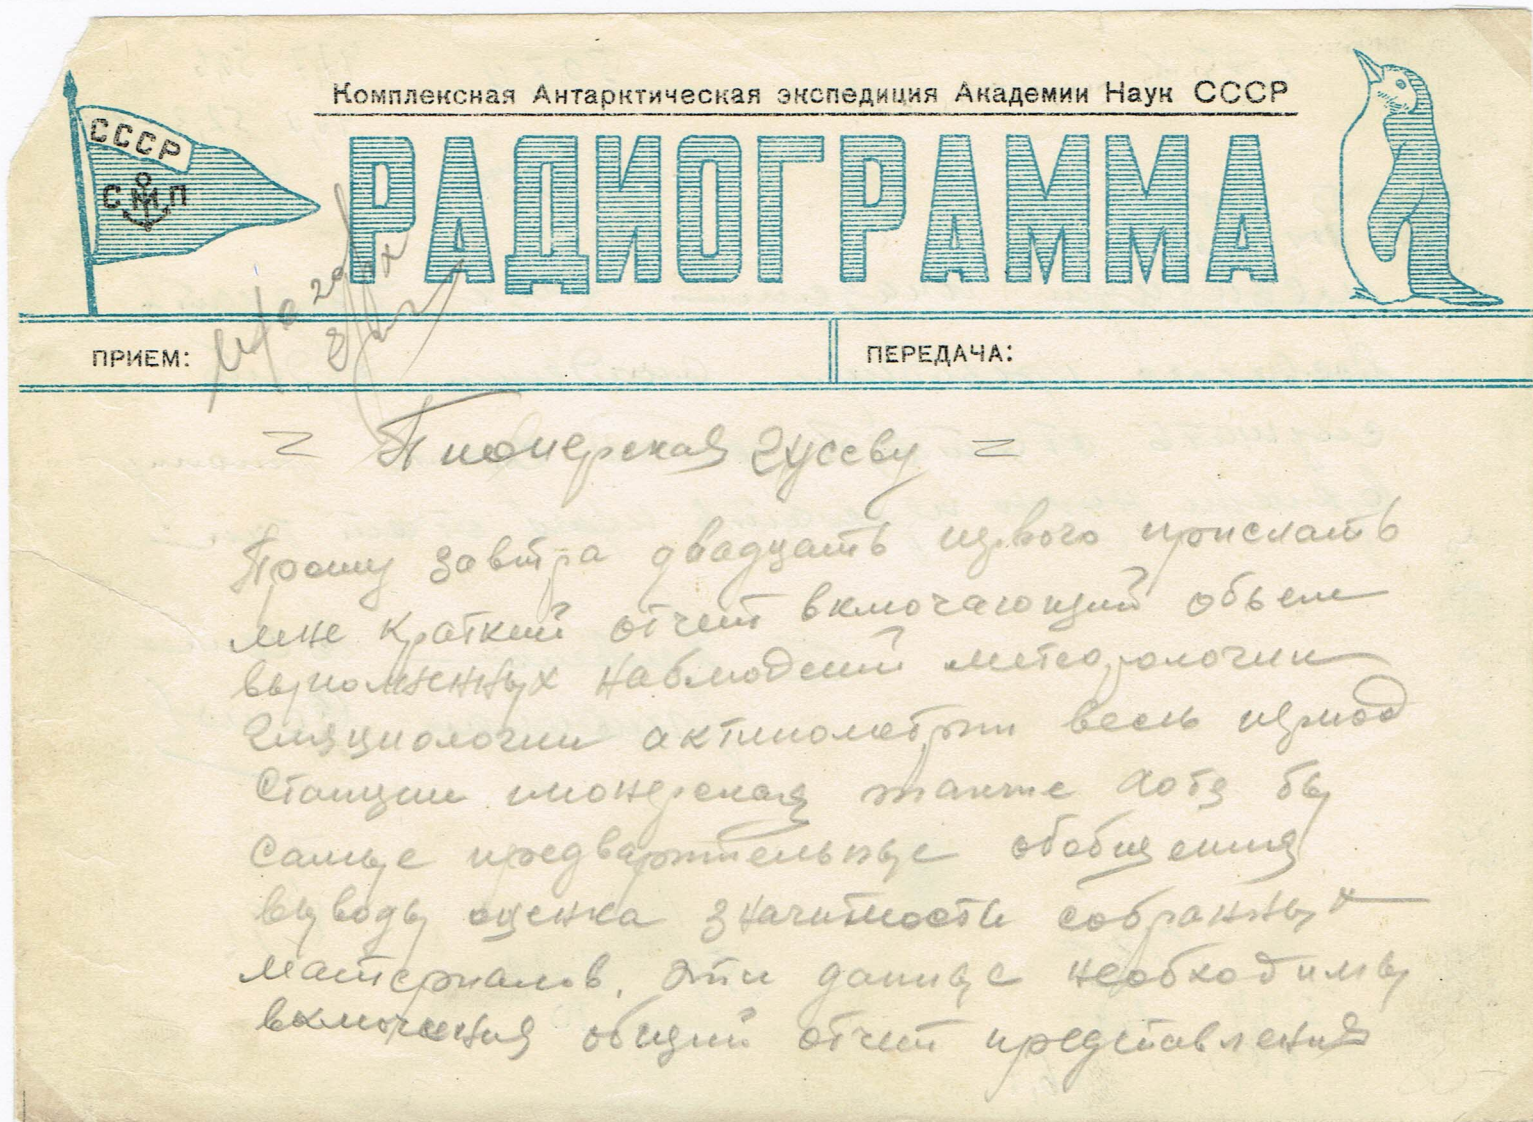 Комплексная Антарктическая экспедиция Академии Наук СССР
СССР
СМП
РАДИОГРАММА
ПРИЕМ:
ПЕРЕДАЧА:
= Пионерская Гусеву =
Прошу завтра двадцать первого прислать
мне краткий отчет включающий объем
выполненных наблюдений метеорологии
гляциологии актинометрии весь период
станции пионерская также хотя бы
самые предварительные обобщения
выводы оценка значимости собранных
материалов. Эти данные необходимы
включения общий отчет представления